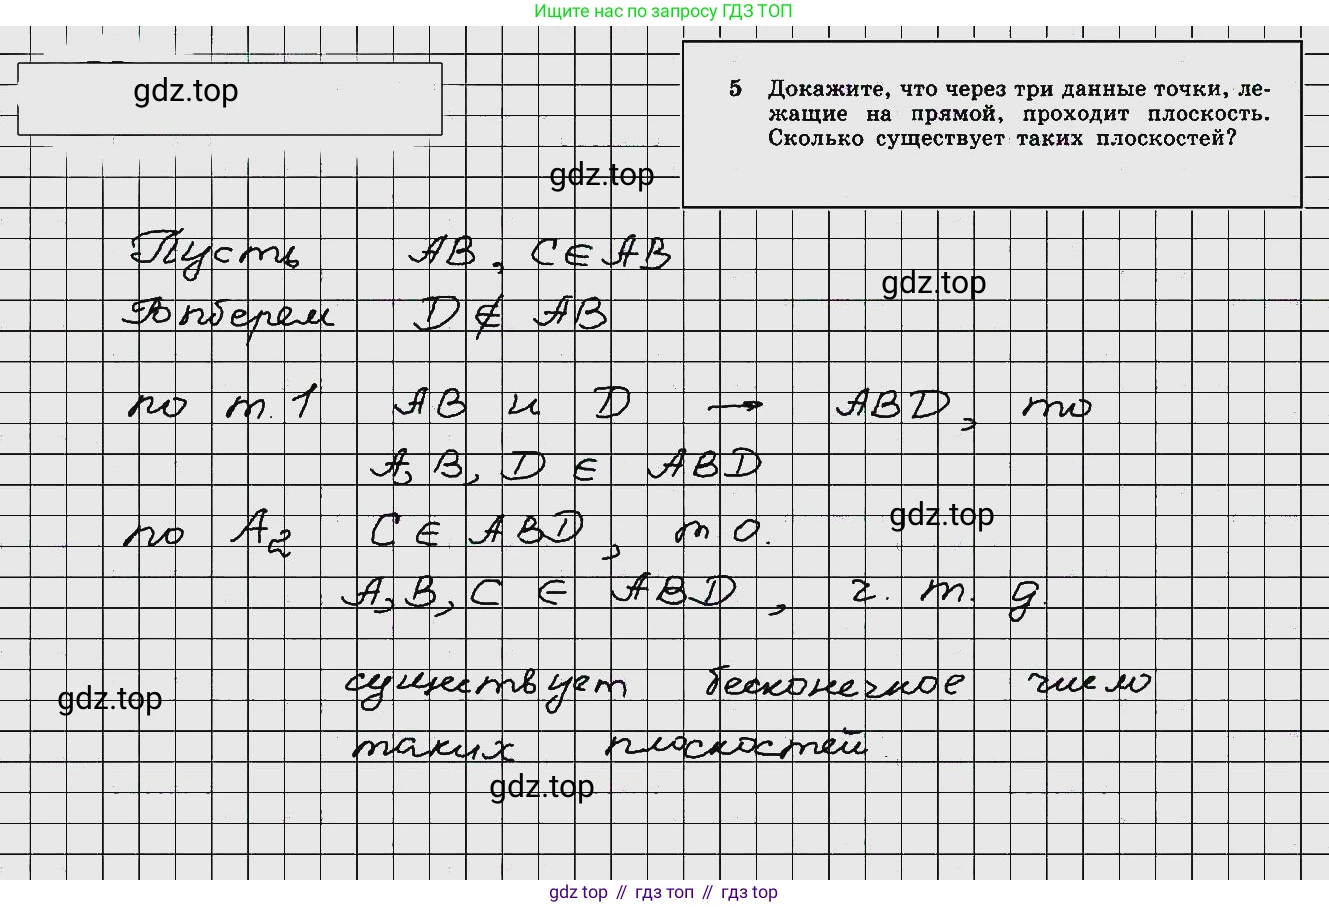 Ищите нас по запросу ГДЗ ТОП
gdz.top
5 Докажите, что через три данные точки, ле-
жащие на прямой, проходит плоскость.
Сколько существует таких плоскостей?
gdz.top
Пусть AB, C ∈ AB
gdz.top
Выберем D ∉ AB
по т. 1 AB и D → ABD, то
A, B, D ∈ ABD
gdz.top
по A2 C ∈ ABD, т о.
A, B, C ∈ ABD, ч. т. д.
существует бесконечное число
gdz.top
таких плоскостей
gdz.top
gdz top // гдз топ // гдз top